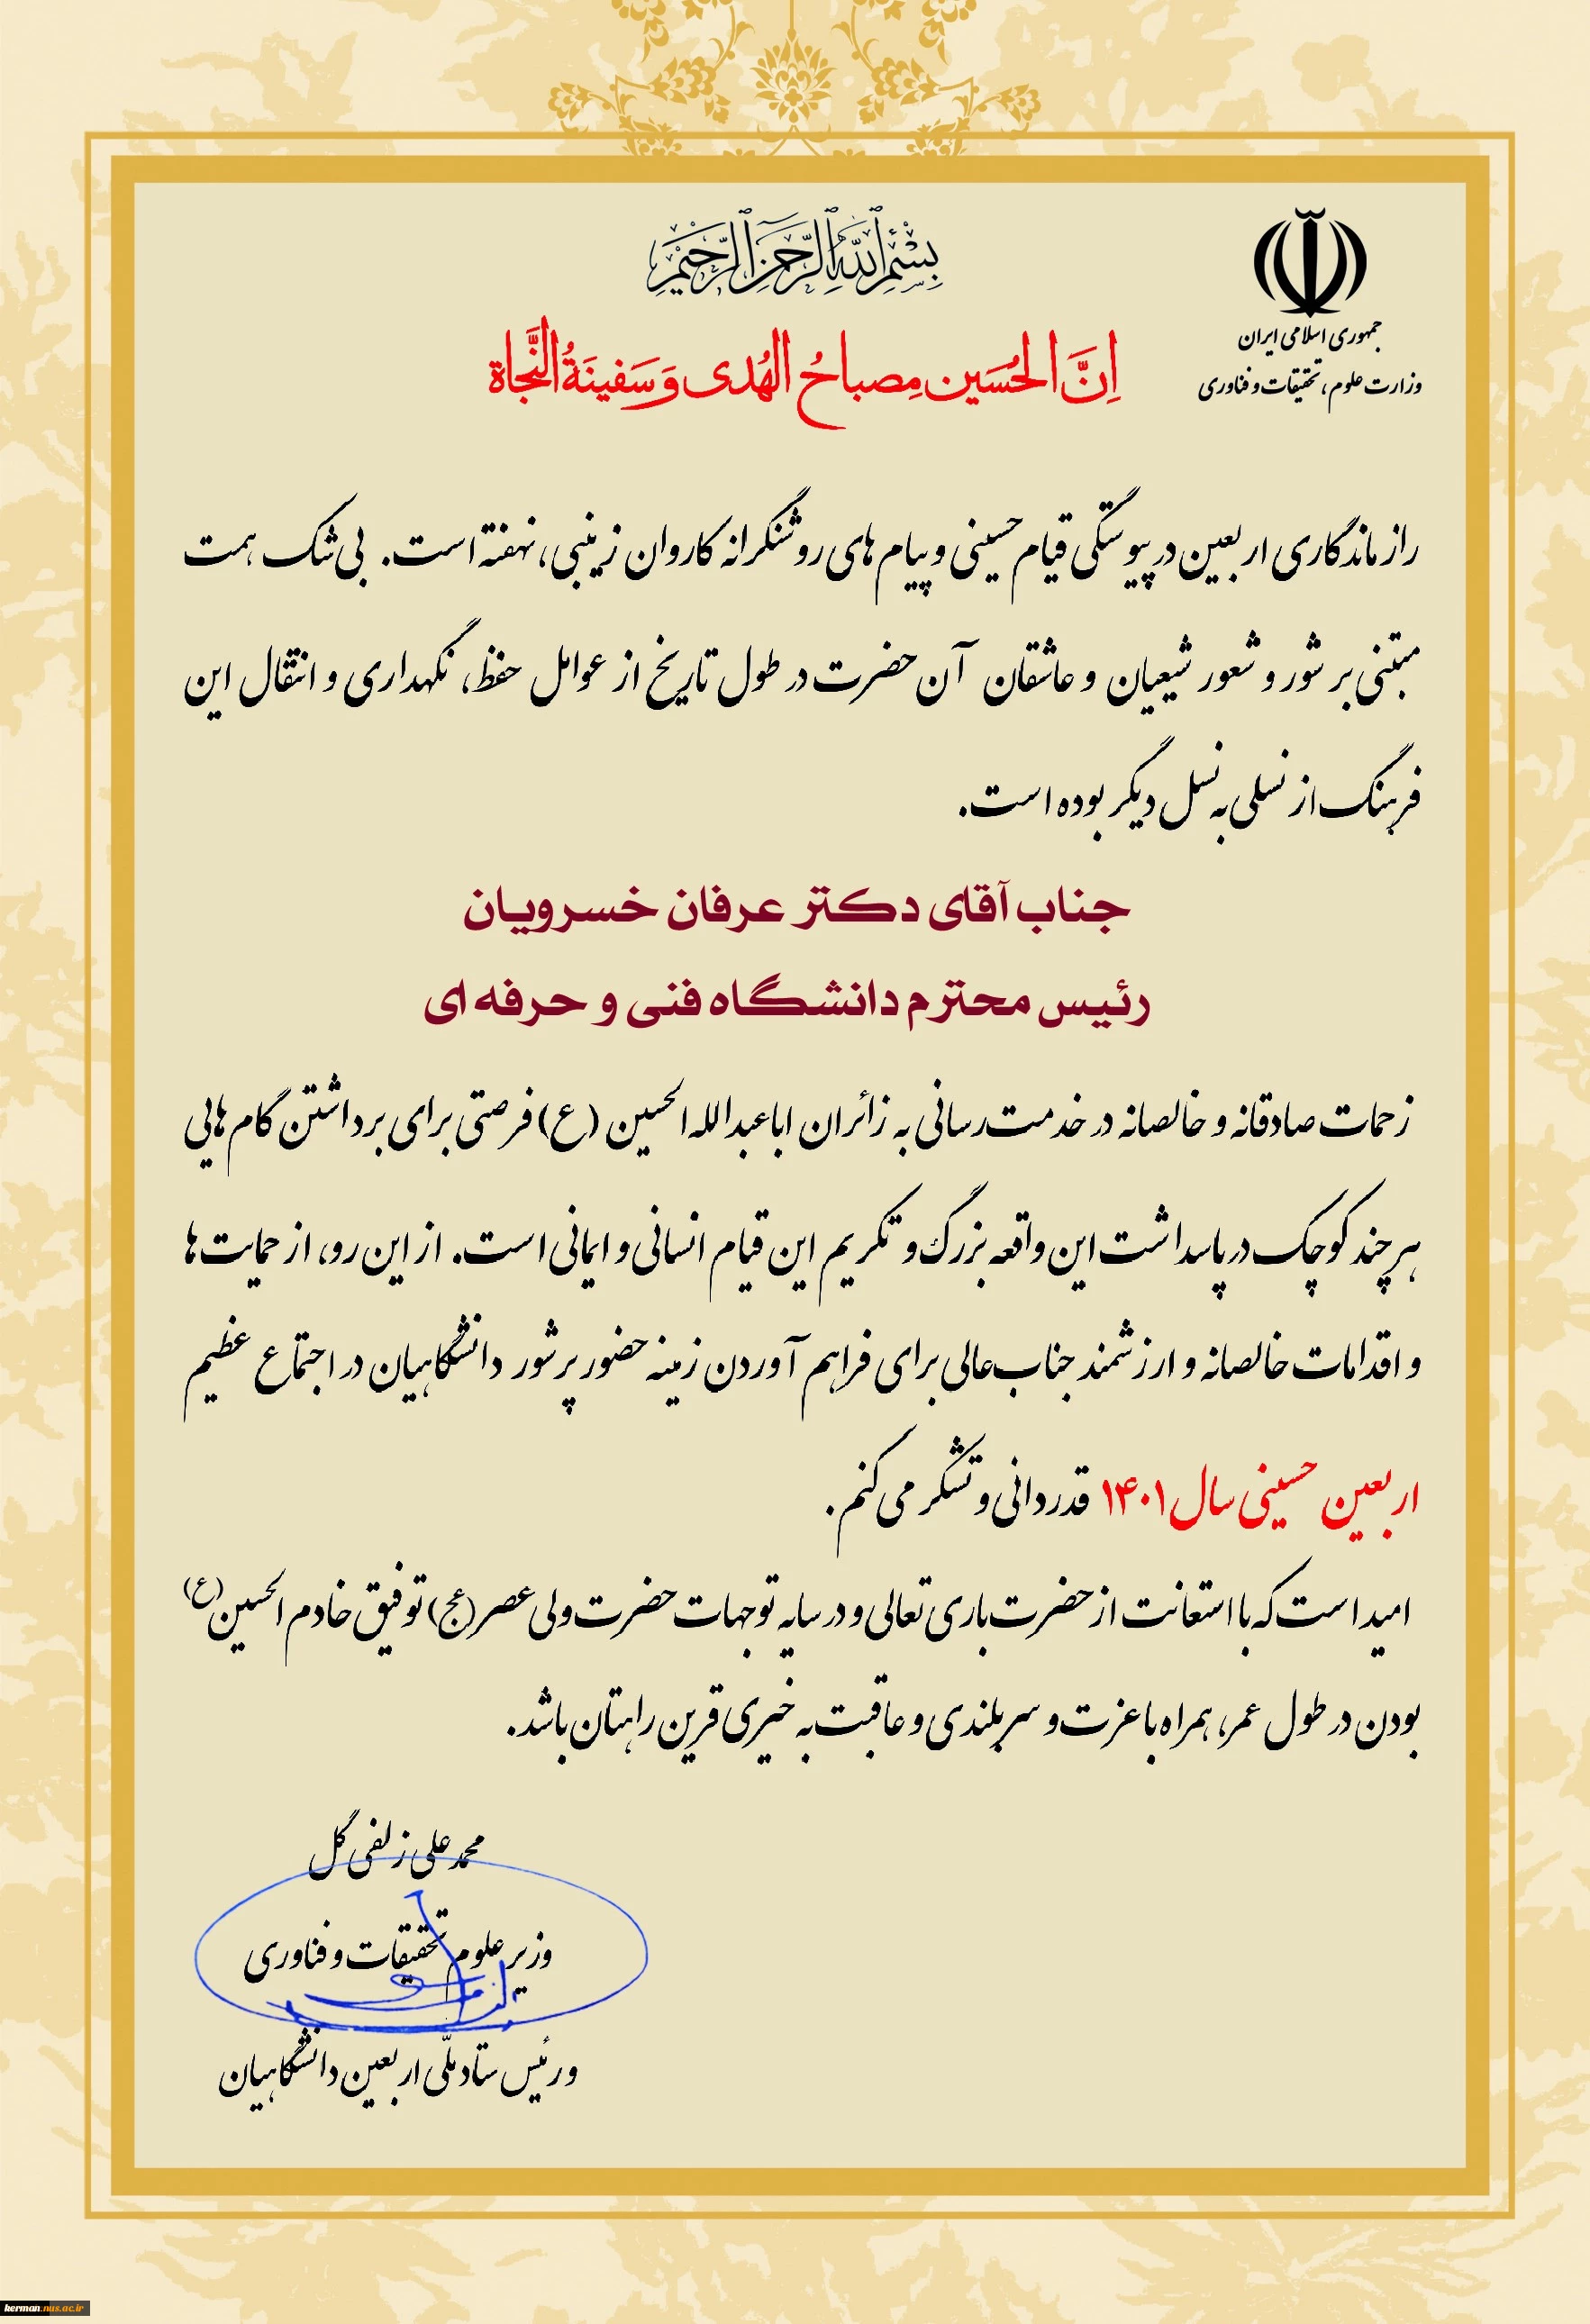 بِسْمِ اللهِ الرَّحْمنِ الرَّحيمِ
جمهوری اسلامی ایران
وزارت علوم، تحقیقات و فناوری
اِنَّ الحُسَین مِصباحُ الهُدی وَ سَفینَةُ النَّجاة
راز ماندگاری اربعین در پیوستگی قیام حسینی و پیام های روشنگرانه کاروان زینبی، نهفته است. بی شک همت
مبتنی بر شور و شعور شیعیان و عاشقان آن حضرت در طول تاریخ از عوامل حفظ، نگهداری و انتقال این
فرهنگ از نسلی به نسل دیگر بوده است.
جناب آقای دکتر عرفان خسرویان
رئیس محترم دانشگاه فنی و حرفه ای
زحمات صادقانه و خالصانه در خدمت رسانی به زائران اباعبدالله الحسین (ع) فرصتی برای برداشتن گام هایی
هر چند کوچک در پاسداشت این واقعه بزرگ و تکریم این قیام انسانی و ایمانی است. از این رو، از حمایت ها
و اقدامات خالصانه و ارزشمند جناب عالی برای فراهم آوردن زمینه حضور پرشور دانشگاهیان در اجتماع عظیم
اربعین حسینی سال ۱۴۰۱ قدردانی و تشکر می کنم.
امید است که با استعانت از حضرت باری تعالی و در سایه توجهات حضرت ولی عصر (عج) توفیق خادم الحسین (ع)
بودن در طول عمر، همراه با عزت و سربلندی و عاقبت به خیری قرین راهتان باشد.
محمدعلی زلفی گل
وزیر علوم تحقیقات و فناوری
و رئیس ستاد ملّی اربعین دانشگاهیان
kerman.nus.ac.ir